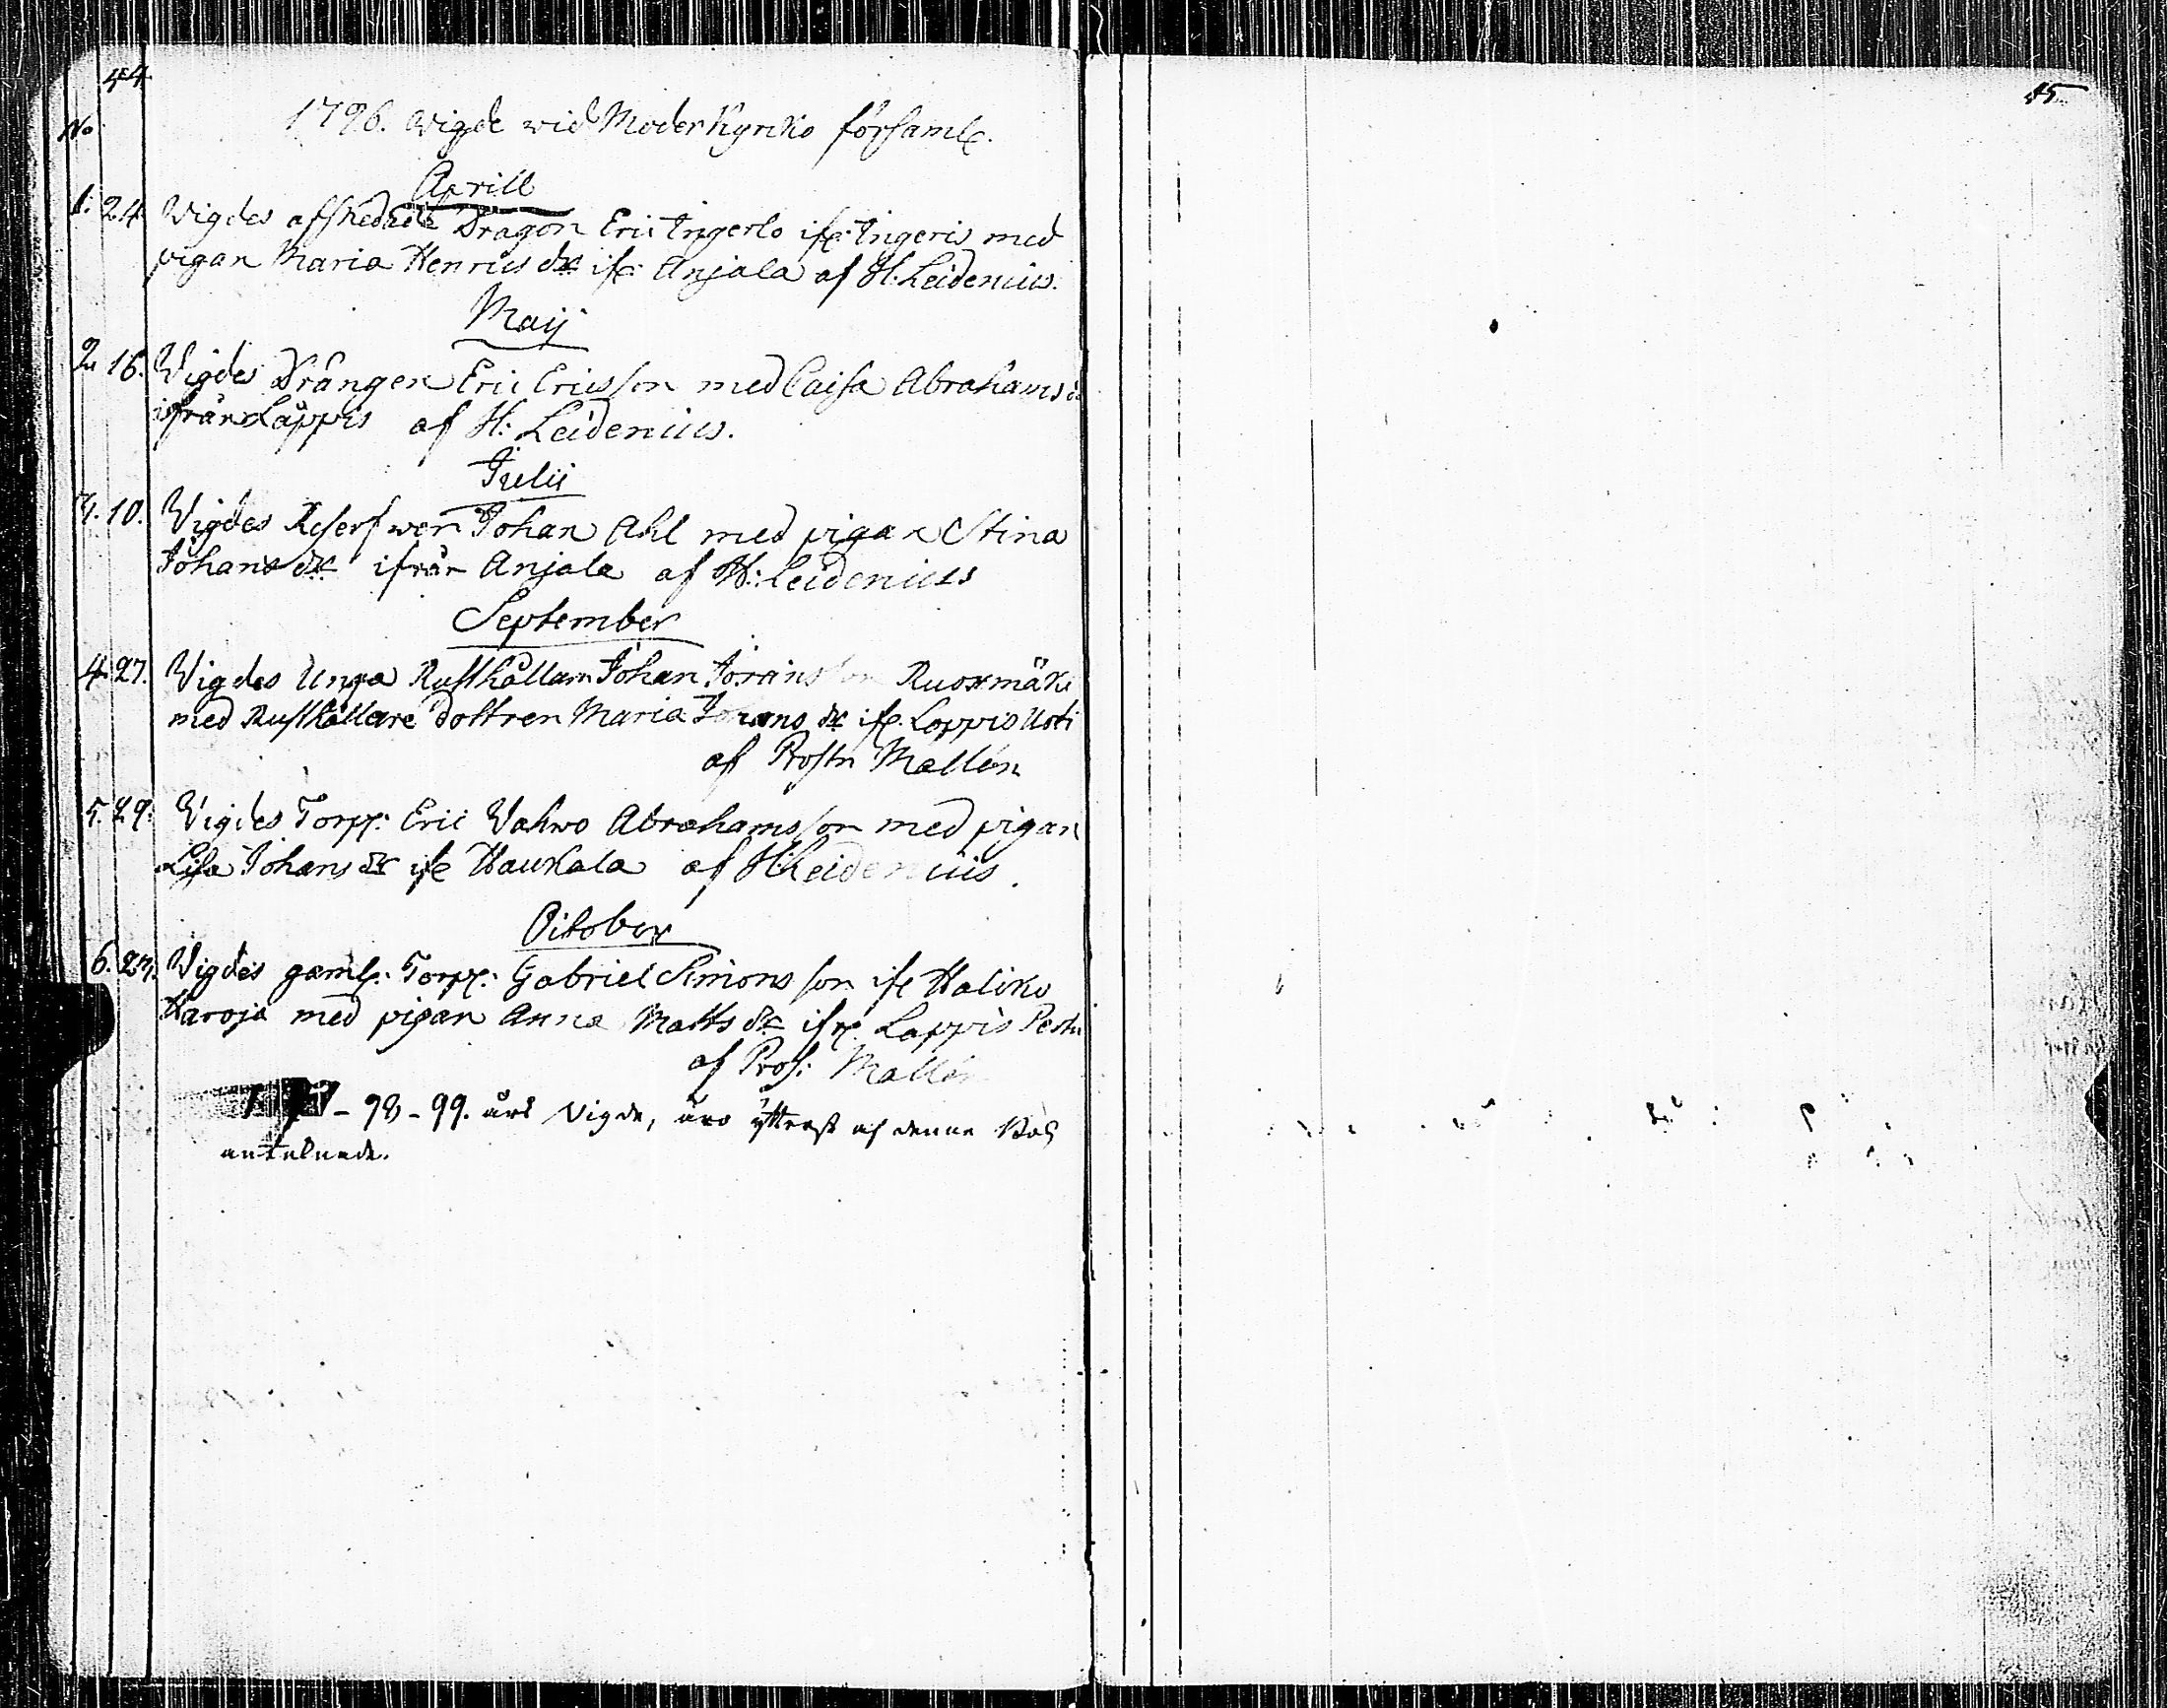 44
No 1796. Wigde wid Moderkyrko församl.
Aprill
1. 24. Wigdes afskedade Dragon Eric Ingerlo ifr. Ingeris med
pigan Maria Henrics dr ifr. Anjala af H. Leidenius.
Maij
2. 16. Wigdes Drängen Eric Ericsson med Caisa Abrahams d
ifrån Lappis af H: Leidenius.
Julii
3. 10. Vigdes Reserfwen Johan Ahl med pigan Stina
Johans dr ifrån Anjala af H: Leidenius
September
4. 27. Vigdes Unga Rusthållarn Johan Jöransson Ruoxmäki
med Rusthållare dottren Maria Johans dr ifr. Loppis Uoti
af Prostn Mallén
5. 29. Vigdes Torp: Eric Wahwo Abrahamsson med pigan
Lisa Johans dr ifr Haukala af H: Leidenius.
October
6. 23. Vigdes gaml: Torp: Gabriel Simons son ifr Haliko
Haroja med pigan Anna Matts dr ifr. Lappis
af Pros: Mallén
- 98 - 99. års Vigde, äro ytterst af denne Bok
anteknade.
45.